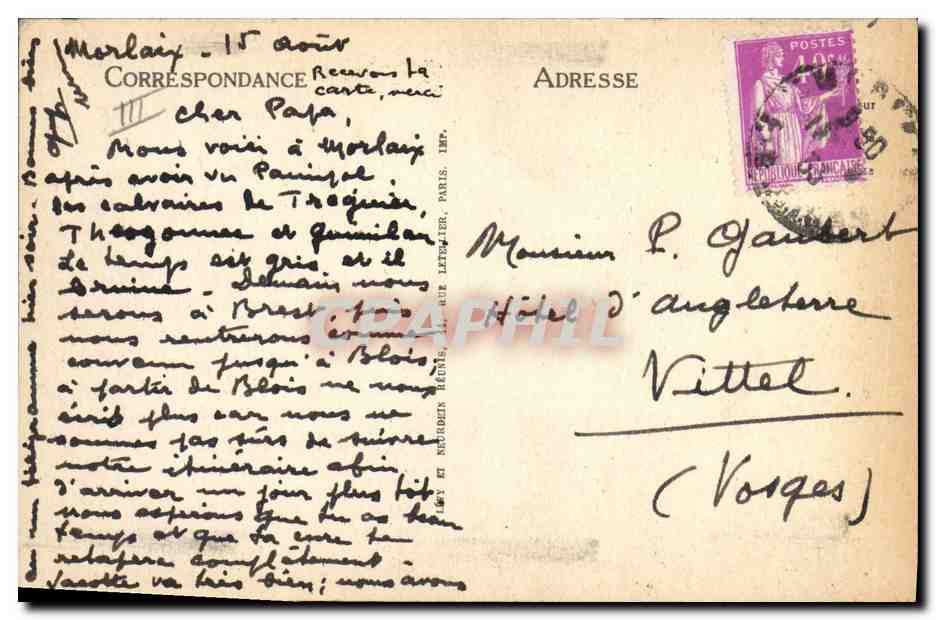 Morlaix - 15 août
CORRESPONDANCE
Recevons ta
carte, merci
III
cher Papa,
Nous voici à Morlaix
après avoir vu
les calvaires de
et Guimiliau
Le temps est gris et il
bruine. Demain nous
serons à Brest puis
nous rentrerons comme
convenu jusqu'à Blois,
à partir de Blois ne nous
écrit plus car nous ne
sommes pas sûrs de suivre
notre itinéraire afin
d'arriver un jour plus tôt
nous espérons que tu as beau
temps et que ta cure te
retapera complètement.
Jacotte va très bien; nous avons
eu un télégramme hier soir - Bonnes
LEVY ET NEURDEIN RÉUNIS, RUE LETELLIER, PARIS. IMP.
ADRESSE
POSTES
RÉPUBLIQUE FRANÇAISE
Monsieur P. Gaubert
Hôtel d'angleterre
Vittel.
(Vosges)
CPAPHIL